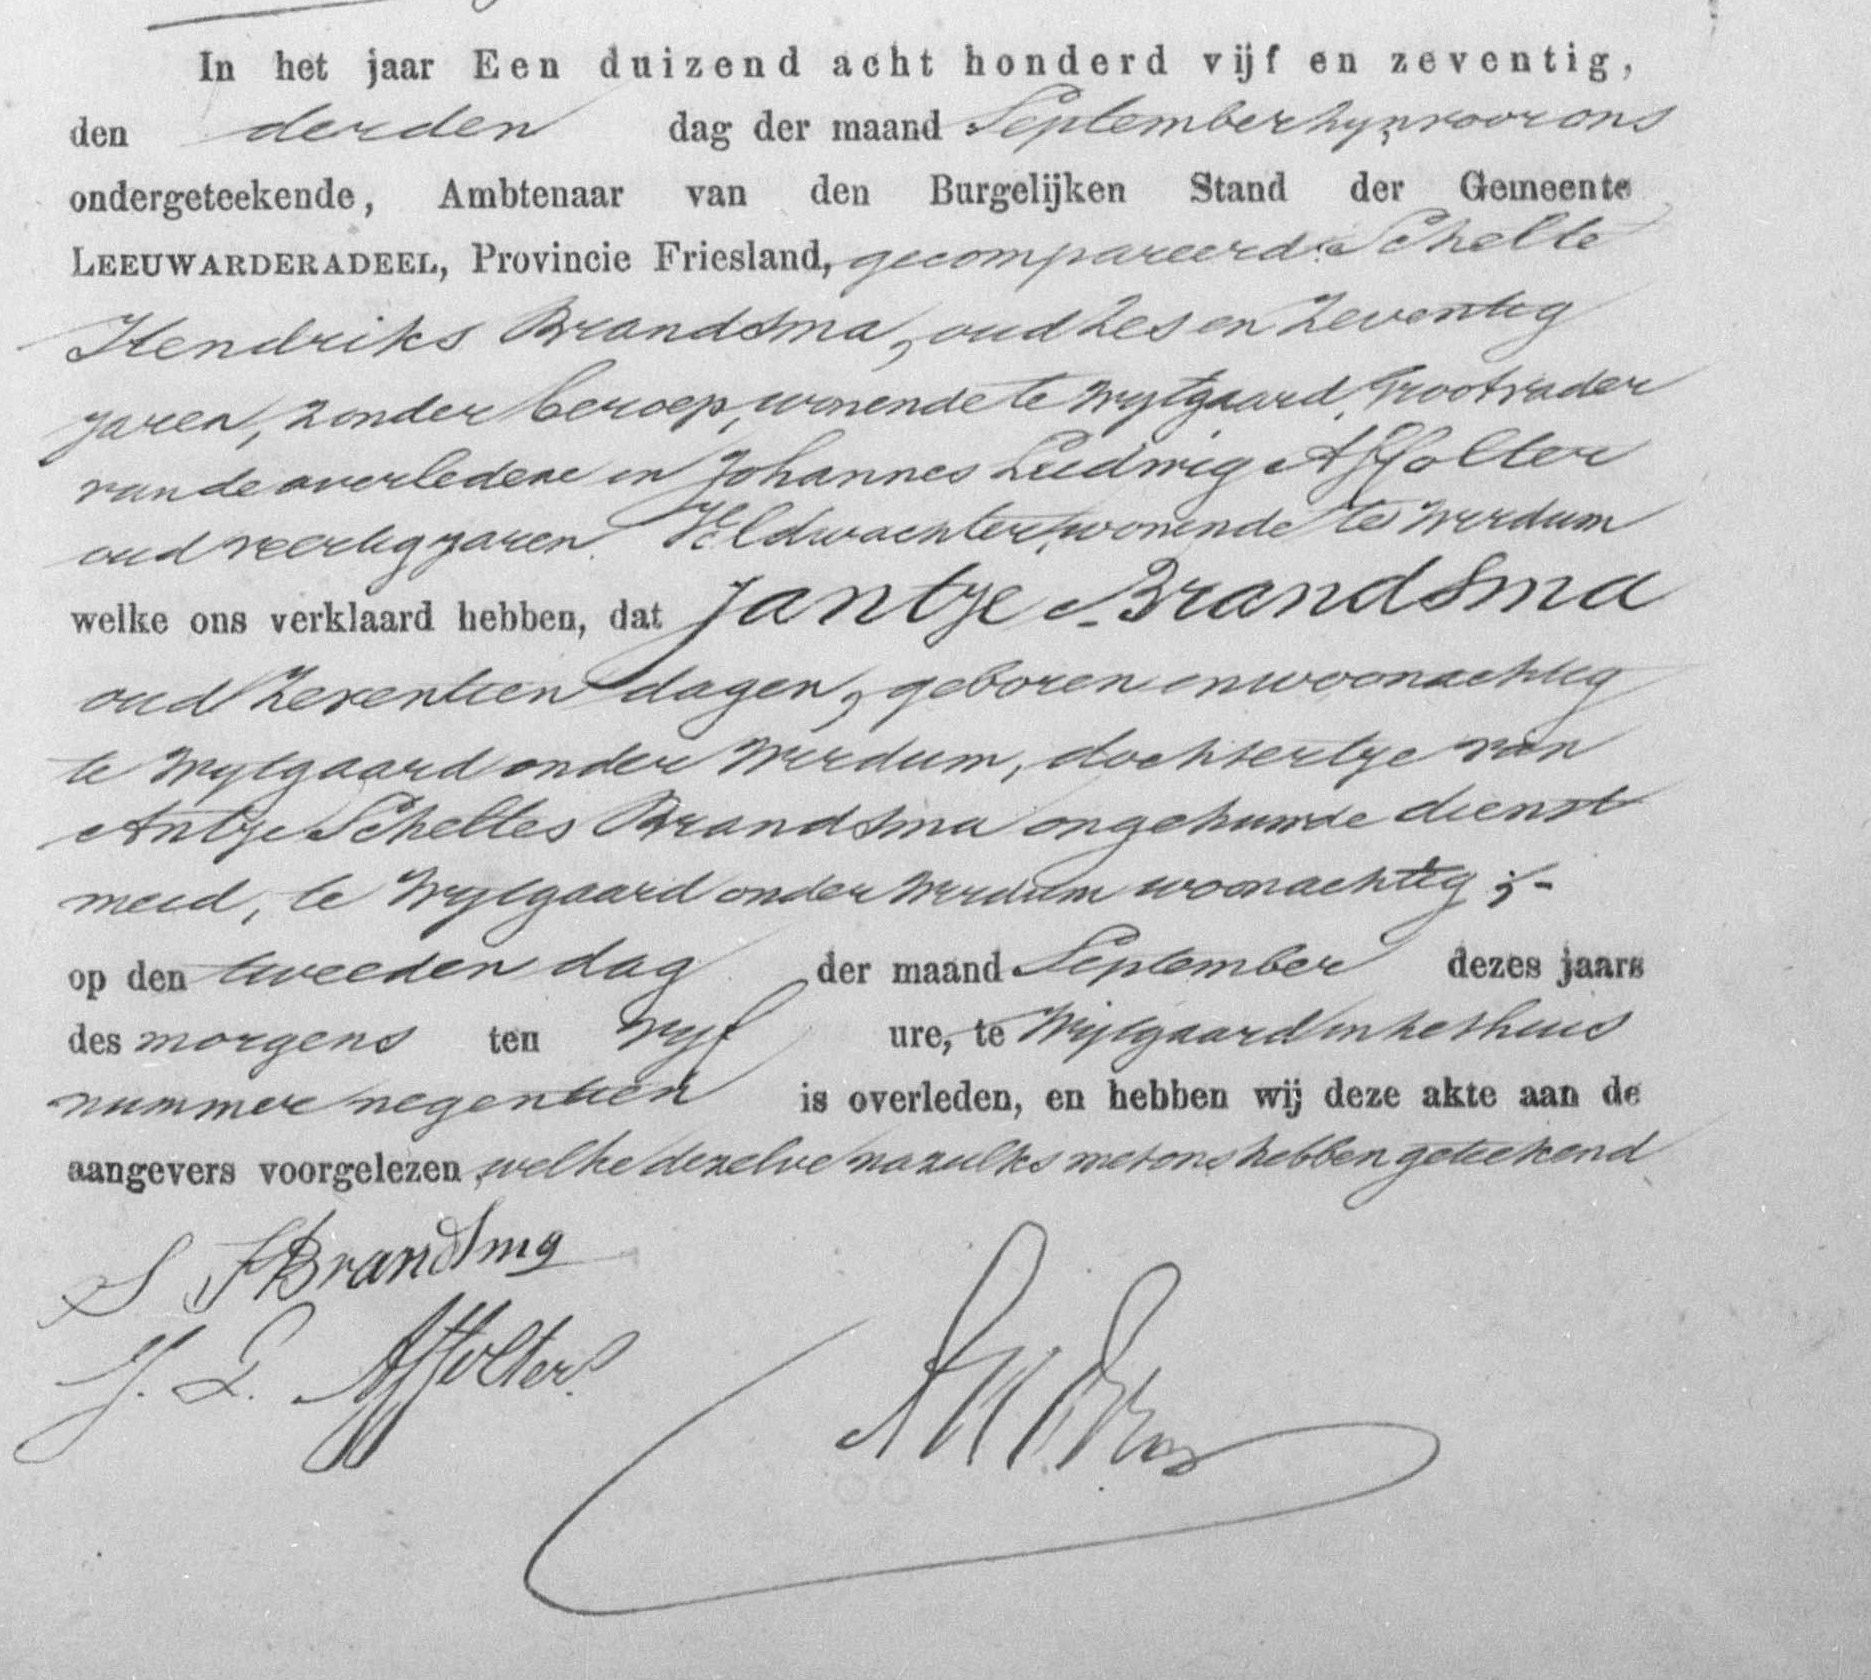 In het jaar Een duizend acht honderd vijf en zeventig,
den derden dag der maand September zyn voor ons
ondergeteekende, Ambtenaar van den Burgelijken Stand der Gemeente
LEEUWARDERADEEL, Provincie Friesland, gecompareerd: Schelte
Hendriks Brandsma, oud Zes en Zeventig
jaren, zonder beroep, wonende te Wytgaard, Grootvader
van de overledene en Johannes Ludwig Affolter
oud veertig jaren Veldwachter, wonende te Wirdum
welke ons verklaard hebben, dat Jantje Brandsma
oud Zeventien dagen, geboren en woonachtig
te Wytgaard onder Wirdum, dochtertje van
Antje Scheltes Brandsma ongehuwde dienst
meid, te Wytgaard onder Wirdum woonachtig ;-
op den tweeden dag der maand September dezes jaars
des morgens ten vyf ure, te Wijtgaard in het huis
nummer negentien is overleden, en hebben wij deze akte aan de
aangevers voorgelezen, welke dezelve nazulks met ons hebben geteekend
S H Brandsma
J. L. Affolter